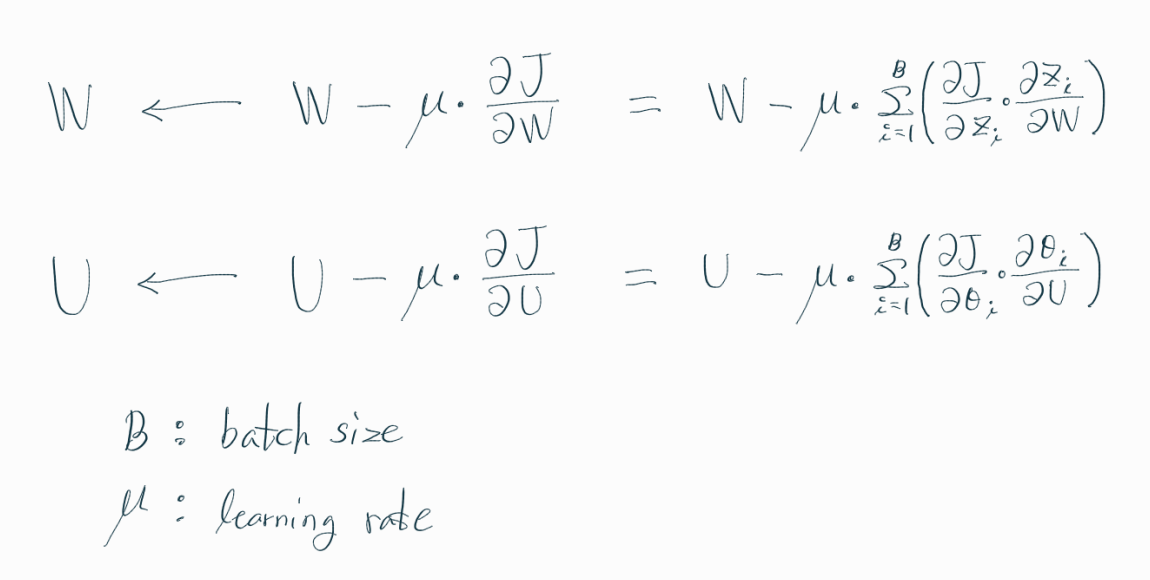 W ← W − μ · ∂J/∂W = W − μ · Σ_{i=1}^{B} (∂J/∂z_i · ∂z_i/∂W)
U ← U − μ · ∂J/∂U = U − μ · Σ_{i=1}^{B} (∂J/∂θ_i · ∂θ_i/∂U)
B : batch size
μ : learning rate